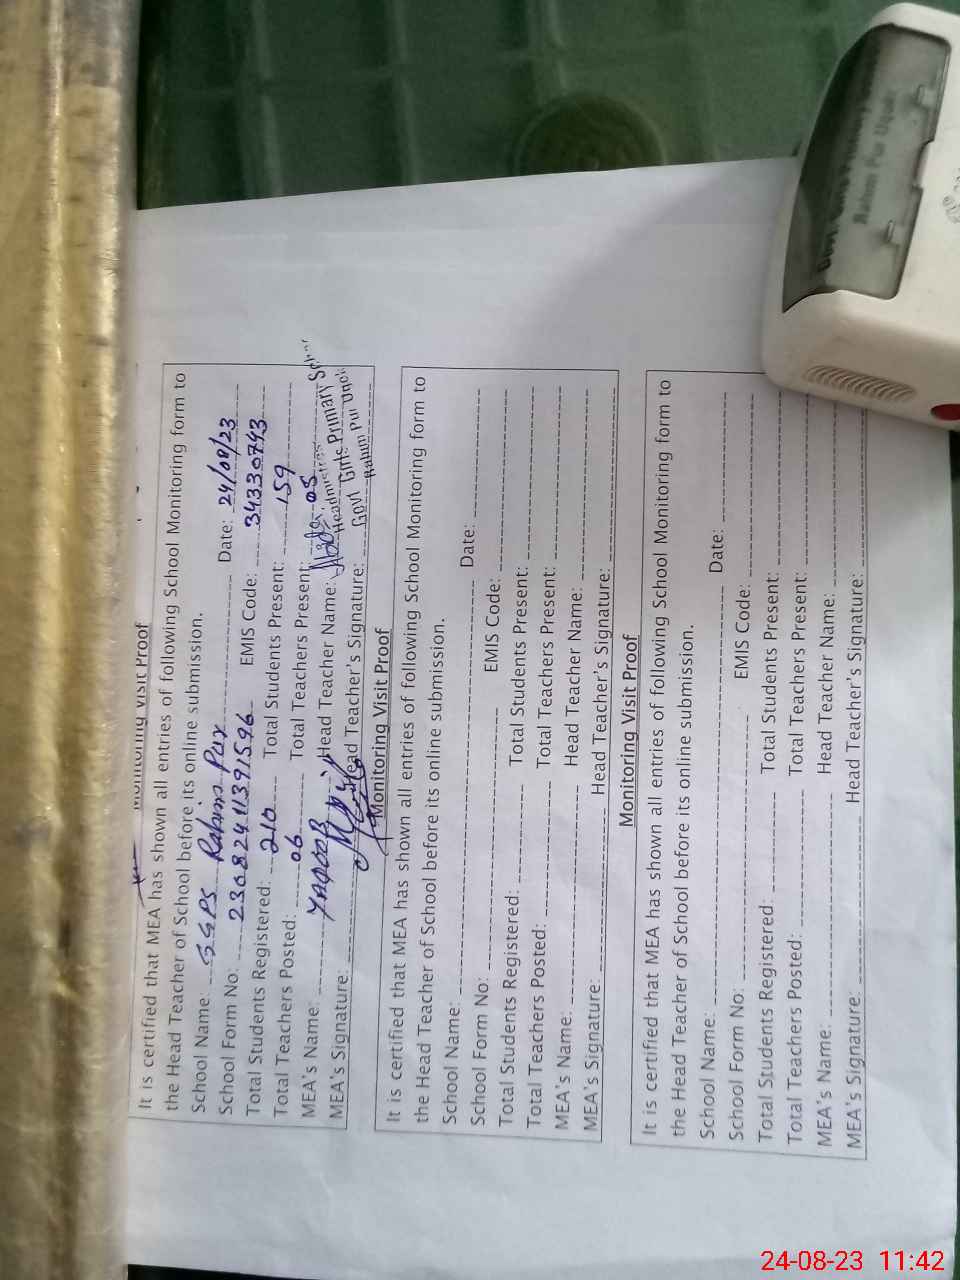 Monitoring Visit Proof
It is certified that MEA has shown all entries of following School Monitoring form to
the Head Teacher of School before its online submission.
School Name: GGPS Rahim Pur Date: 24/08/23
School Form No: 23082411391596 EMIS Code: 34330743
Total Students Registered: 210 Total Students Present: 159
Total Teachers Posted: 06 Total Teachers Present: 05
MEA's Name: Head Teacher Name:
MEA's Signature: Head Teacher's Signature:
Headmistress
Govt Girls Primary School
Rahim Pur Ugoki
Monitoring Visit Proof
It is certified that MEA has shown all entries of following School Monitoring form to
the Head Teacher of School before its online submission.
School Name: Date:
School Form No: EMIS Code:
Total Students Registered: Total Students Present:
Total Teachers Posted: Total Teachers Present:
MEA's Name: Head Teacher Name:
MEA's Signature: Head Teacher's Signature:
Monitoring Visit Proof
It is certified that MEA has shown all entries of following School Monitoring form to
the Head Teacher of School before its online submission.
School Name: Date:
School Form No: EMIS Code:
Total Students Registered: Total Students Present:
Total Teachers Posted: Total Teachers Present:
MEA's Name: Head Teacher Name:
MEA's Signature: Head Teacher's Signature:
Govt. Girls Primary
Rahim Pur Ugoki
24-08-23 11:42